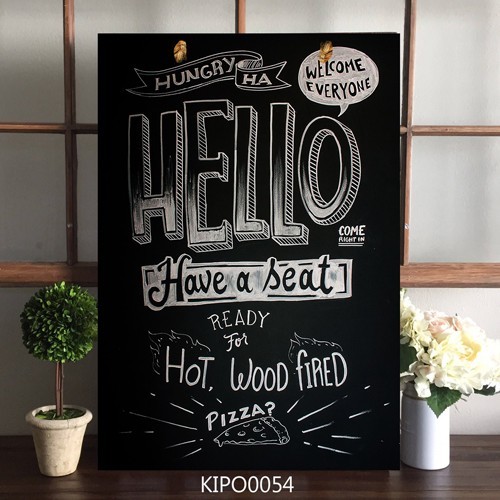 HUNGRY HA
WELCOME
EVERYONE
HELLO
COME
RIGHT IN
Have a seat
READY
For
HOT, WOOD FIRED
PIZZA?
KIPO0054